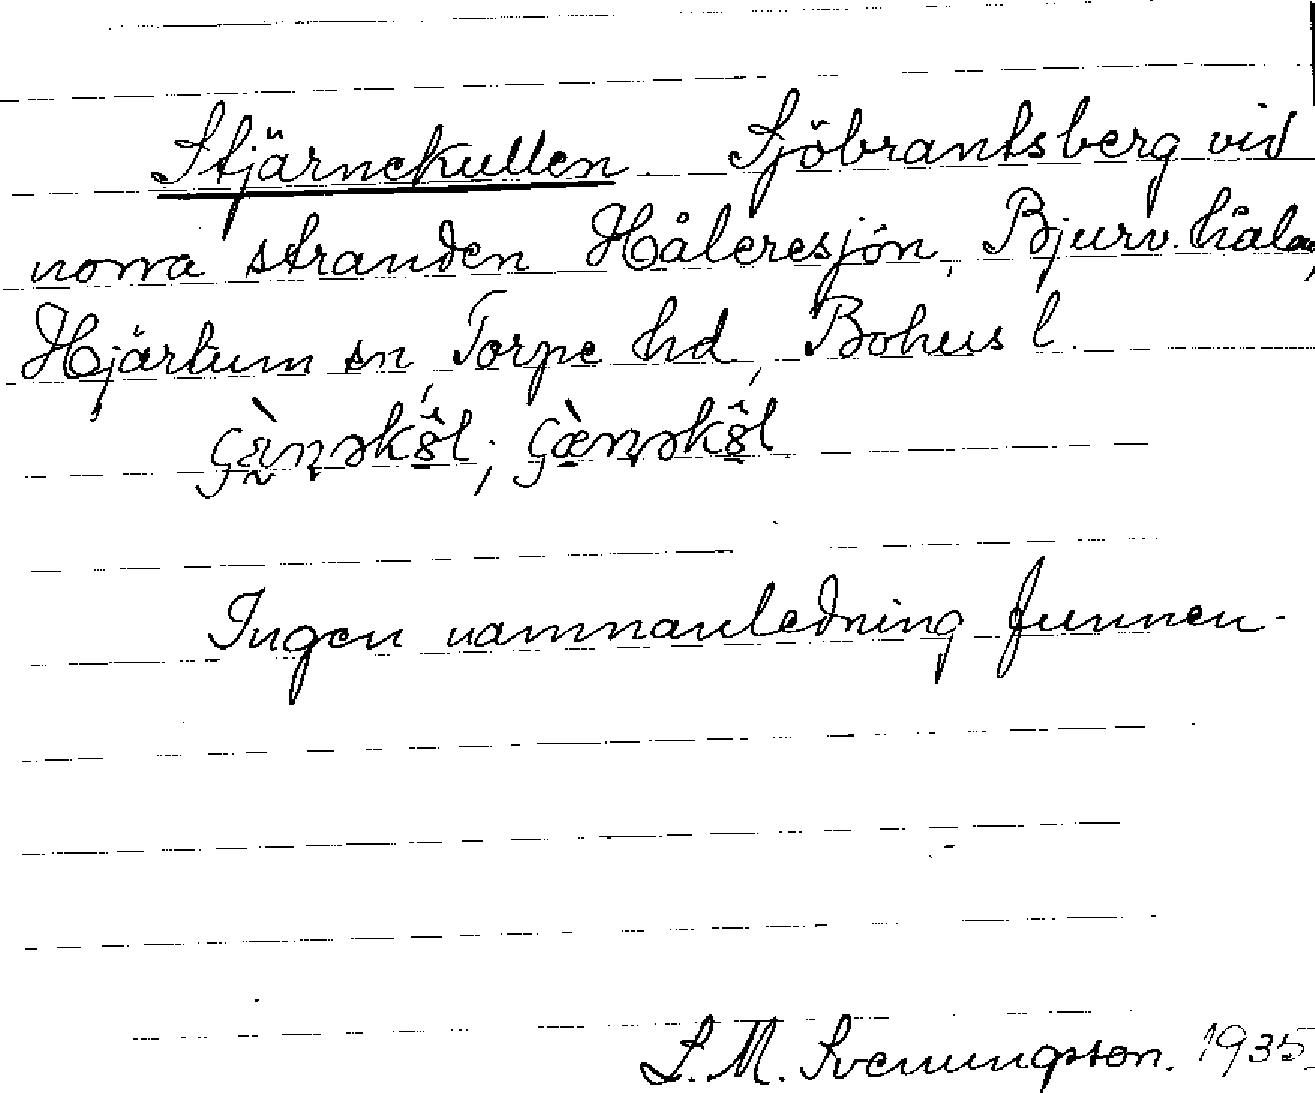 Stjärnekullen. Sjöbrantsberg vid
norra stranden Håleresjön, Bjurv. håla,
Hjärtum sn, Torpe hd, Bohus l.
Ingen namnanledning funnen.
S. M. Svenungsson. 1935